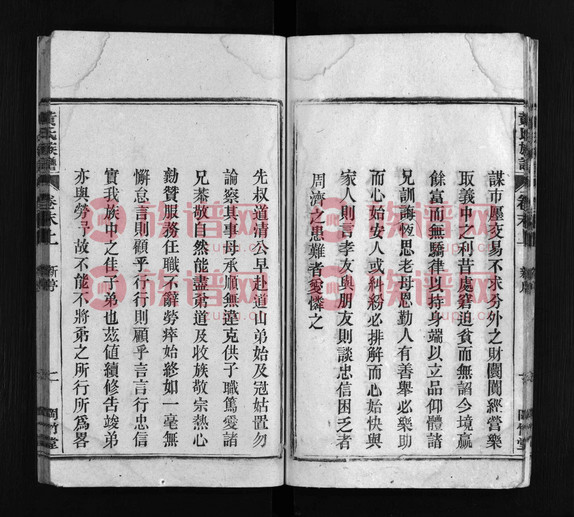 謀市廛交易不求分外之財闤闠經營樂
取義中之利昔處窘迫貧而無諂今境贏
餘富而無驕律以持身端以立品仰體諸
兄訓誨恆思老母恩勤人有善舉必樂助
而心始安人或糾紛必排解而心始快與
家人則言孝友與朋友則談忠信困乏者
周濟之患難者憂憐之
黃氏族譜
卷末上
先叔道清公早赴道山弟始及冠姑置勿
論察其事母承順無違克供子職篤愛諸
兄恭敬自然能盡弟道及收族敬宗熱心
勷贊服務任職不辭勞瘁始終如一毫無
懈怠言則顧乎行行則顧乎言言行忠信
實我族中之佳子弟也茲值續修告竣弟
亦與勞焉故不能不將弟之所行所為畧
黃氏族譜
卷末上